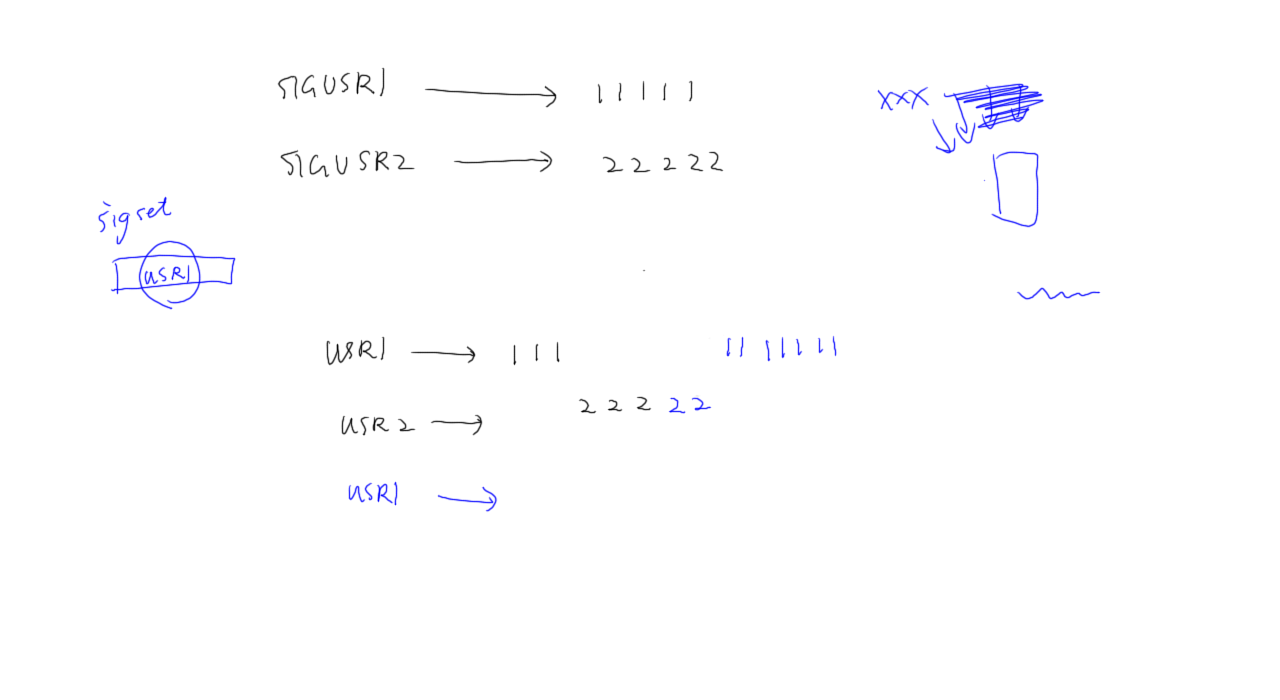 SIGUSR1 → 1 1 1 1 1
xxx
SIGUSR2 → 2 2 2 2 2
sigset
USR1
USR1 → 1 1 1 1 1 1 1 1 1 1
USR2 → 2 2 2 2 2
USR1 →